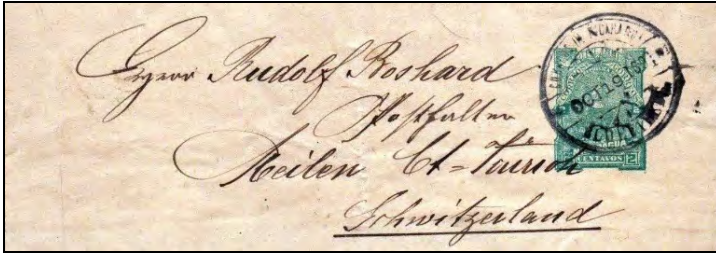 Herrn Rudolf Boshard
Posthalter
Meilen Ct=Zürich
Schwitzerland
OCT 18
CENTAVOS 2